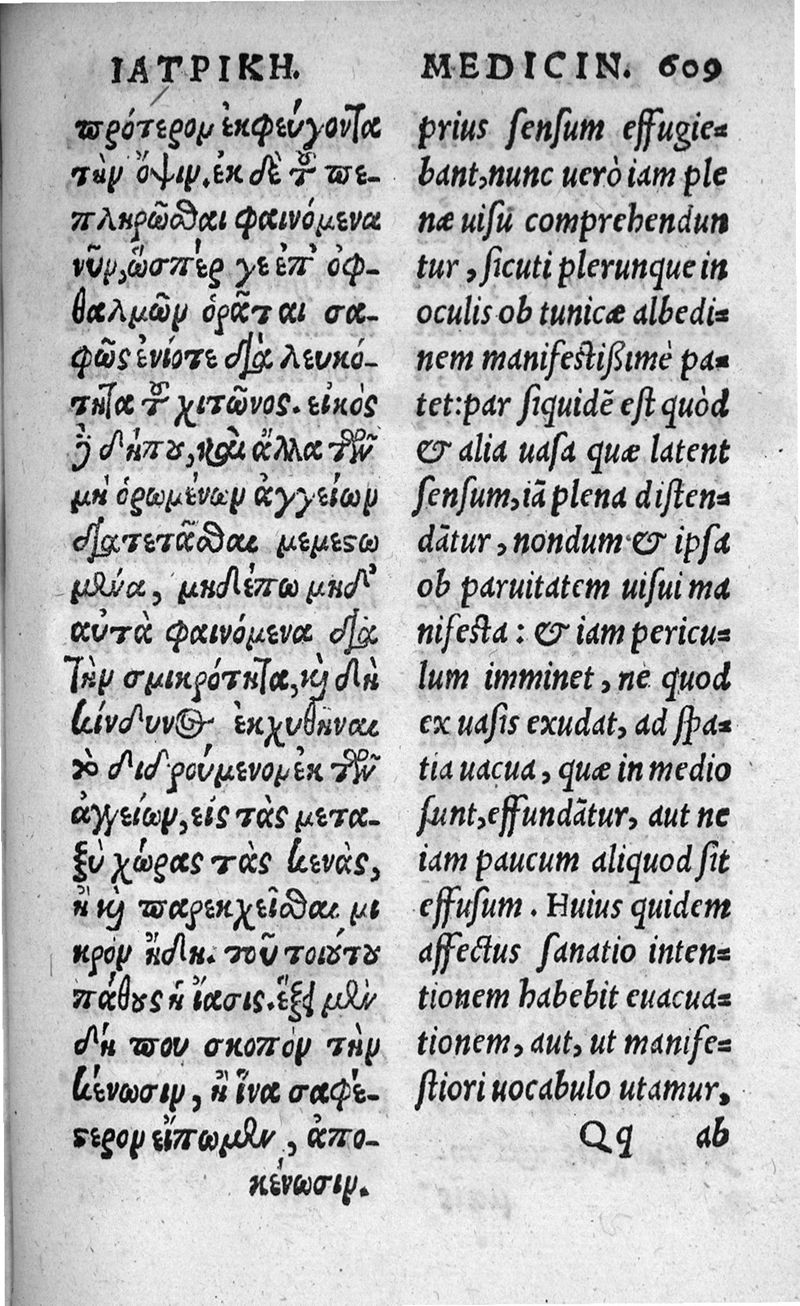 ΙΑΤΡΙΚΗ.
πρότερον ἐκφεύγοντα
τὴν ὄψιν, ἐκ δὲ τοῦ πε-
πληρῶσθαι φαινόμενα
νῦν, ὥσπέρ γε ἐπ' ὀφ-
θαλμῶν ὁρᾶται σα-
φῶς ἐνίοτε διὰ λευκό-
τητα τοῦ χιτῶνος. εἰκὸς
δὲ δήπου, καὶ ἄλλα τῶν
μὴ ὁρωμένων ἀγγείων
διατετᾶσθαι μεμεστω
μένα, μηδέπω μηδ'
αὐτὰ φαινόμενα διὰ
τὴν σμικρότητα, καὶ δὴ
κίνδυνος ἐκχυθῆναι
τὸ διδρούμενον ἐκ τῶν
ἀγγείων, εἰς τὰς μετα-
ξὺ χώρας τὰς κενὰς,
ἢ καὶ παρεκχεῖσθαι μι
κρὸν ἤδη. τοῦ τοιούτου
πάθους ἡ ἴασις. ἕξει μὲν
δή που σκοπὸν τὴν
κένωσιν, ἢ ἵνα σαφέ-
στερον εἴπωμεν, ἀπο-
κένωσιν.
MEDICIN. 609
prius sensum effugie=
bant, nunc uerò iam ple
næ uisu comprehendun
tur, sicuti plerunque in
oculis ob tunicæ albedi=
nem manifestißimè pa=
tet: par siquidē est quòd
& alia uasa quæ latent
sensum, iā plena disten=
dātur, nondum & ipsa
ob paruitatem uisui ma
nifesta: & iam pericu=
lum imminet, ne quod
ex uasis exudat, ad spa=
tia uacua, quæ in medio
sunt, effundātur, aut ne
iam paucum aliquod sit
effusum. Huius quidem
affectus sanatio inten=
tionem habebit euacua=
tionem, aut, ut manife=
stiori uocabulo utamur,
Qq ab